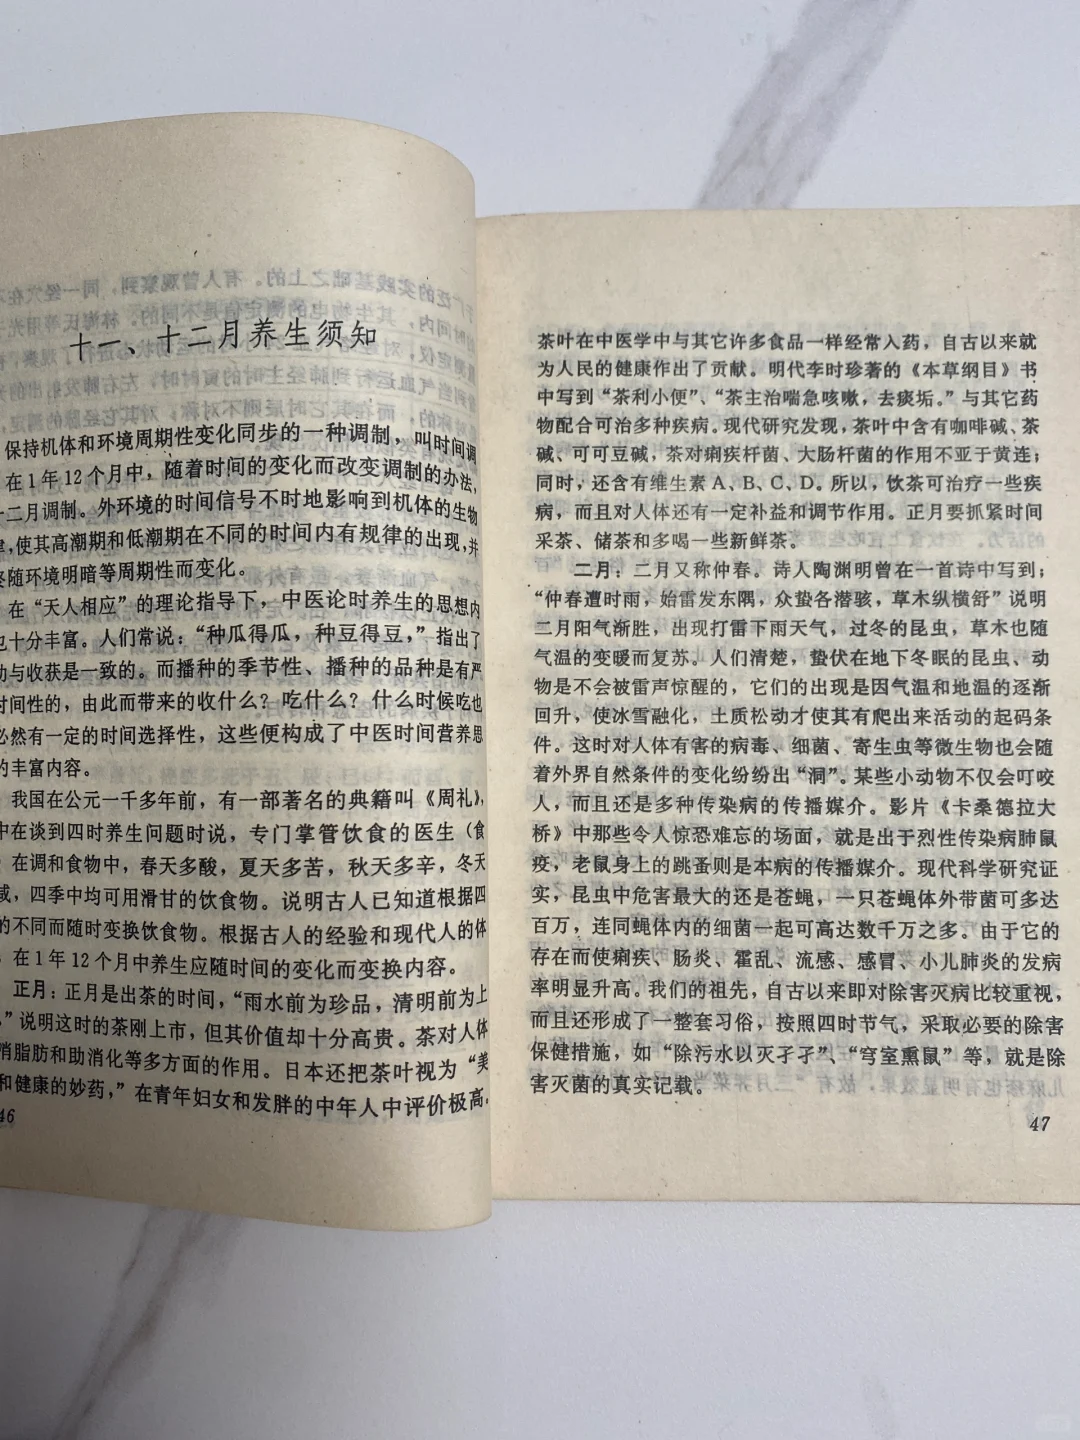 十一、十二月养生须知
保持机体和环境周期性变化同步的一种调制，叫时间调
在1年12个月中，随着时间的变化而改变调制的办法，
十二月调制。外环境的时间信号不时地影响到机体的生物
律，使其高潮期和低潮期在不同的时间内有规律的出现，并
随环境明暗等周期性而变化。
在“天人相应”的理论指导下，中医论时养生的思想内
也十分丰富。人们常说：“种瓜得瓜，种豆得豆，”指出了
动与收获是一致的。而播种的季节性、播种的品种是有严
时间性的，由此而带来的收什么？吃什么？什么时候吃也
必然有一定的时间选择性，这些便构成了中医时间营养思
的丰富内容。
我国在公元一千多年前，有一部著名的典籍叫《周礼》，
中在谈到四时养生问题时说，专门掌管饮食的医生（食
在调和食物中，春天多酸，夏天多苦，秋天多辛，冬天
咸，四季中均可用滑甘的饮食物。说明古人已知道根据四
的不同而随时变换饮食物。根据古人的经验和现代人的体
在1年12个月中养生应随时间的变化而变换内容。
正月：正月是出茶的时间，“雨水前为珍品，清明前为上
”说明这时的茶刚上市，但其价值却十分高贵。茶对人体
消脂肪和助消化等多方面的作用。日本还把茶叶视为“美
和健康的妙药，”在青年妇女和发胖的中年人中评价极高。
46
茶叶在中医学中与其它许多食品一样经常入药，自古以来就
为人民的健康作出了贡献。明代李时珍著的《本草纲目》书
中写到“茶利小便”、“茶主治喘急咳嗽，去痰垢。”与其它药
物配合可治多种疾病。现代研究发现，茶叶中含有咖啡碱、茶
碱、可可豆碱，茶对痢疾杆菌、大肠杆菌的作用不亚于黄连；
同时，还含有维生素A、B、C、D。所以，饮茶可治疗一些疾
病，而且对人体还有一定补益和调节作用。正月要抓紧时间
采茶、储茶和多喝一些新鲜茶。
二月：二月又称仲春。诗人陶渊明曾在一首诗中写到；
“仲春遭时雨，始雷发东隅，众蛰各潜骇，草木纵横舒”说明
二月阳气渐胜，出现打雷下雨天气，过冬的昆虫，草木也随
气温的变暖而复苏。人们清楚，蛰伏在地下冬眠的昆虫、动
物是不会被雷声惊醒的，它们的出现是因气温和地温的逐渐
回升，使冰雪融化，土质松动才使其有爬出来活动的起码条
件。这时对人体有害的病毒、细菌、寄生虫等微生物也会随
着外界自然条件的变化纷纷出“洞”。某些小动物不仅会叮咬
人，而且还是多种传染病的传播媒介。影片《卡桑德拉大
桥》中那些令人惊恐难忘的场面，就是出于烈性传染病肺鼠
疫，老鼠身上的跳蚤则是本病的传播媒介。现代科学研究证
实，昆虫中危害最大的还是苍蝇，一只苍蝇体外带菌可多达
百万，连同蝇体内的细菌一起可高达数千万之多。由于它的
存在而使痢疾、肠炎、霍乱、流感、感冒、小儿肺炎的发病
率明显升高。我们的祖先，自古以来即对除害灭病比较重视，
而且还形成了一整套习俗，按照四时节气，采取必要的除害
保健措施，如“除污水以灭孑孑”、“穹室熏鼠”等，就是除
害灭菌的真实记载。
47